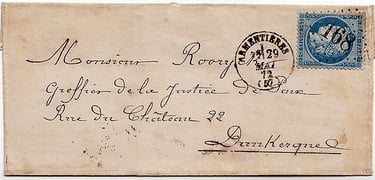 ARMENTIÈRES
29
MAI
72
168
Monsieur Roory
Greffier de la Justice de Paix
Rue du Château 22
Dunkerque